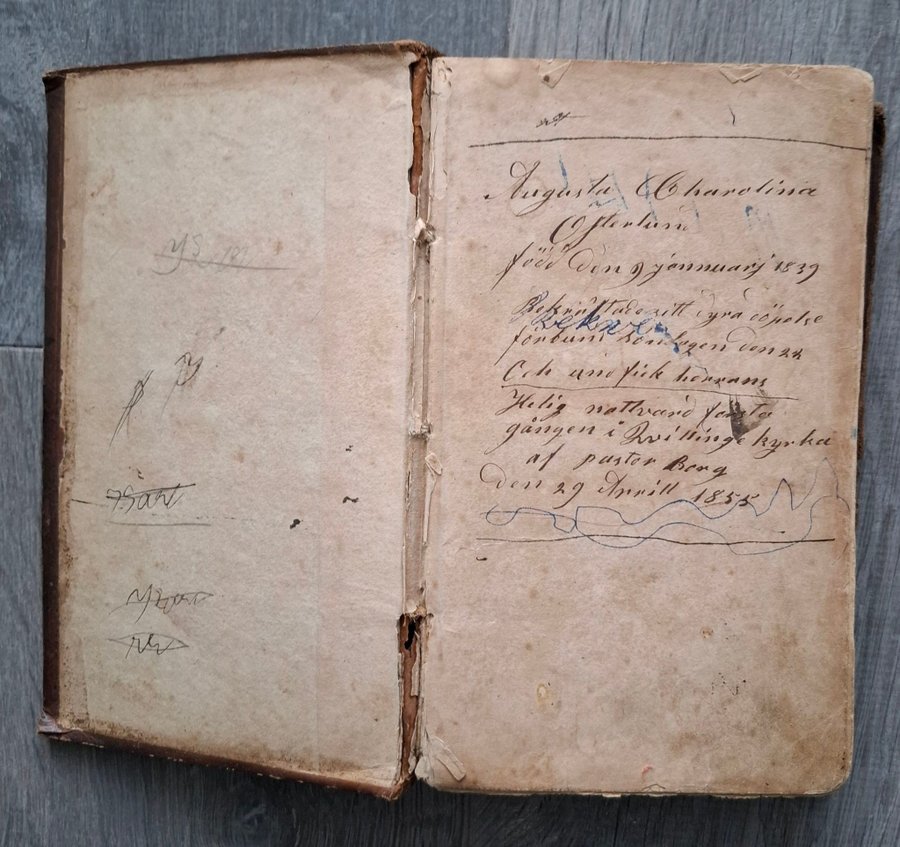 Augusta Charolina
Österlund
född den 9 jannuarj 1839
Bekräftade sitt dyra döpelse
förbund Söndagen den 22
Och undfick herrans
Helig nattvard första
gången i Qvillinge kyrka
af pastor Berg
Den 29 Aprill 1855